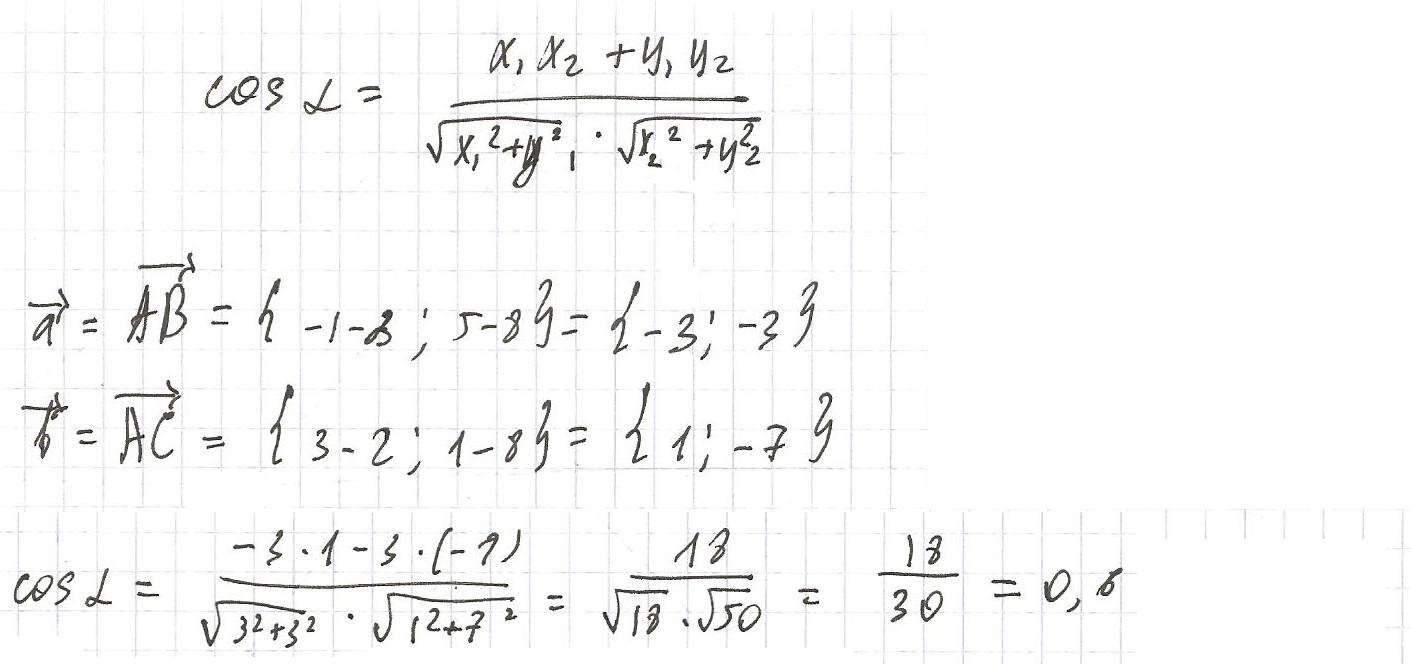 cos α = (x₁ x₂ + y₁ y₂) / (√(x₁² + y₁²) · √(x₂² + y₂²))
a⃗ = AB⃗ = { -1-2 ; 5-8 } = { -3 ; -3 }
b⃗ = AC⃗ = { 3-2 ; 1-8 } = { 1 ; -7 }
cos α = (-3 · 1 - 3 · (-7)) / (√(3² + 3²) · √(1² + 7²)) = 18 / (√18 · √50) = 18 / 30 = 0,6